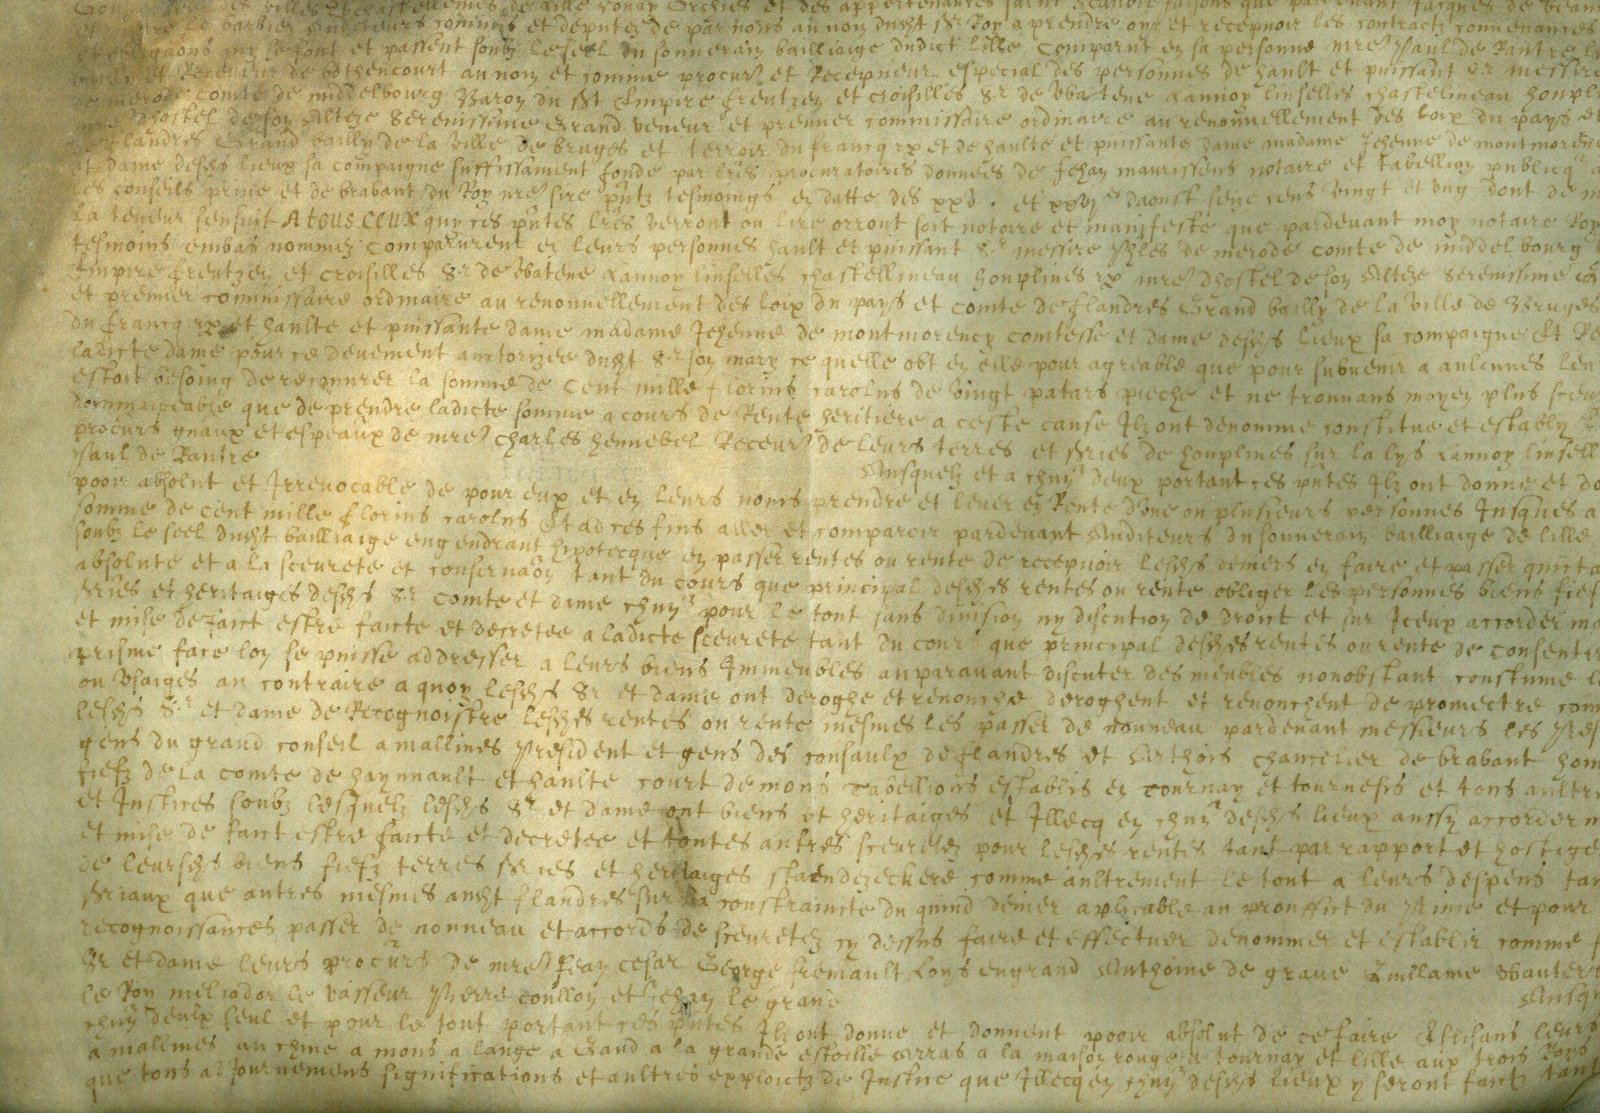 des villes et chastellenies de Lille Douay Orchies et des appertenances salut scavoir faisons que pardevant Jacques de
le barbier Auditeurs commis et deputez de par nous au nom dudit Sr Roy a prendre oyr et recepvoir les contractz convenances
et obligaons quy se font et passent soubz le seel du souverain bailliaige dudict Lille Comparut en sa personne mre Paul de Rantre
et Receveur de bethencourt au nom et comme procur et Recepveur especial des personnes de hault et puissant Sr messire
de merode Comte de middelbourg Baron du St Empire frentzen et croisilles Sr de Watene Lannoy linselles chastelineau houpli
dhostel de son Alteze Serenissime Grand veneur et premier commissaire ordinaire au renouvellement des loix du pays et
flandres Grand bailly de la ville de bruges et terroir du francq rx et de haulte et puissante dame madame Jehenne de montmorenc
et dame desds lieux sa compaigne suffissament fonde par lres procuratoires donnees de Jehan maurissens notaire et tabellion publicq
les conseils prive et de brabant du Roy nre sire pntz tesmoings en datte des xxv . et xxvi daoust seize cens vingt et ung dont de
la teneur sensuit A tous ceux quy ces pntes lres verront ou lire orront soit notoire et manifeste que pardevant moy notaire Roy
tesmoins embas nommez Comparurent en leurs personnes hault et puissant Sr messire Phles de merode comte de middelbourg
Empire frentzen et croisilles Sr de Watene Lannoy linselles chastellineau houplines rx mre dhostel de son Alteze Serenissime
et premier commissaire ordinaire au renouvellement des loix du pays et comte de flandres Grand bailly de la ville de Bruges
du francq rx et haulte et puissante dame madame Jehenne de montmorency comtesse et dame desds lieux sa compaigne Et
ladicte dame pour ce deuement auctorizee dudt Sr son mary ce quelle eut en elle pour agreable que pour subvenir a aulcunes leu
estoit besoing de recouvrer la somme de cent mille florins carolus de vingt patars pieche et ne trouvans moyen plus
dommaigeable que de prendre ladicte somme a cours de Rente heritiere a ceste cause Ilz ont denomme constitue et estably
procurs gnaux et espeaux de mre Charles hennebel Receur de leurs terres et sries de houplines sur la lys Lannoy linsell
Paul de Rantre Ausquelz et a chun deux portant ces pntes Ilz ont donne et do
pooir absolut et Irrevocable de pour eux et en leurs noms prendre et lever en Rente dune ou plusieurs personnes Jusques a
somme de cent mille florins carolus Et ad ces fins aller et comparoir pardevant Auditeurs du souverain bailliaige de lille
soubz le seel dudt bailliaige engendrant hipotecque en passer rentes ou rente de recepvoir lesds deniers en faire et passer quicta
absolute et a la sceurete et conservaon tant du cours que principal desds rentes ou rente obliger les personnes biens fief
sries et heritaiges desds Sr Comte et dame chun pour le tout sans division ny discution de droict et sur Iceux accorder
et mise de faict estre faicte et decretee a ladicte sceurete tant du cours que principal desds rentes ou rente de consentir
prisme face lon se puisse addresser a leurs biens Immeubles auparavant discuter des meubles nonobstant coustume
ou Usaiges au contraire a quoy lesds Sr et dame ont deroghe et renonche deroghent et renonchent de promectre com
lesds Sr et dame de Recognoistre lesds rentes ou rente mesmes les passer de nouveau pardevant messieurs les Pres
gens du grand conseil a mallines President et gens des consaulx de flandres et Arthois chancelier de brabant hom
fiefz de la comte de haynnault et haulte court de mons Tabellions establis en tournay et tournesis et tous aultre
et Justices soubz lesquelz lesds Sr et dame ont biens et heritaiges et Illecq en chun desds lieux aussy accorder
et mise de faict estre faicte et decretee et toutes autres sceuretez pour lesds rentes tant par rapport et hostige
de leursds biens fiefz terres sries et heritaiges staendezeckere comme aultrement le tout a leurs despens tan
Sriaux que autres mesmes audt flandres sur la constraincte du quind denier aplicable au prouffict du Prince et pour
recognoissances passer de nouveau et accords de sceuretez cy dessus faire et effectuer denommer et establir comme
Sr et dame leurs procurs de mre Jean cesar George fremault Loys engrand Anthoine de grave Guillame Wauters
le Roy meliador le vasseur Pierre coullon et Jehan le grave Ausqu
chun deulx seul et pour le tout portant ces pntes Ilz ont donne et donnent pooir absolut de ce faire Eslisans leurs
a mallines au chine a mons a lange a Gand a la grande estoille Arras a la maison rouge a tournay et lille aux trois Roys
que tous adjournemens significations et aultres exploictz de Justice que Illecq en chun desds lieux y seront faictz tant